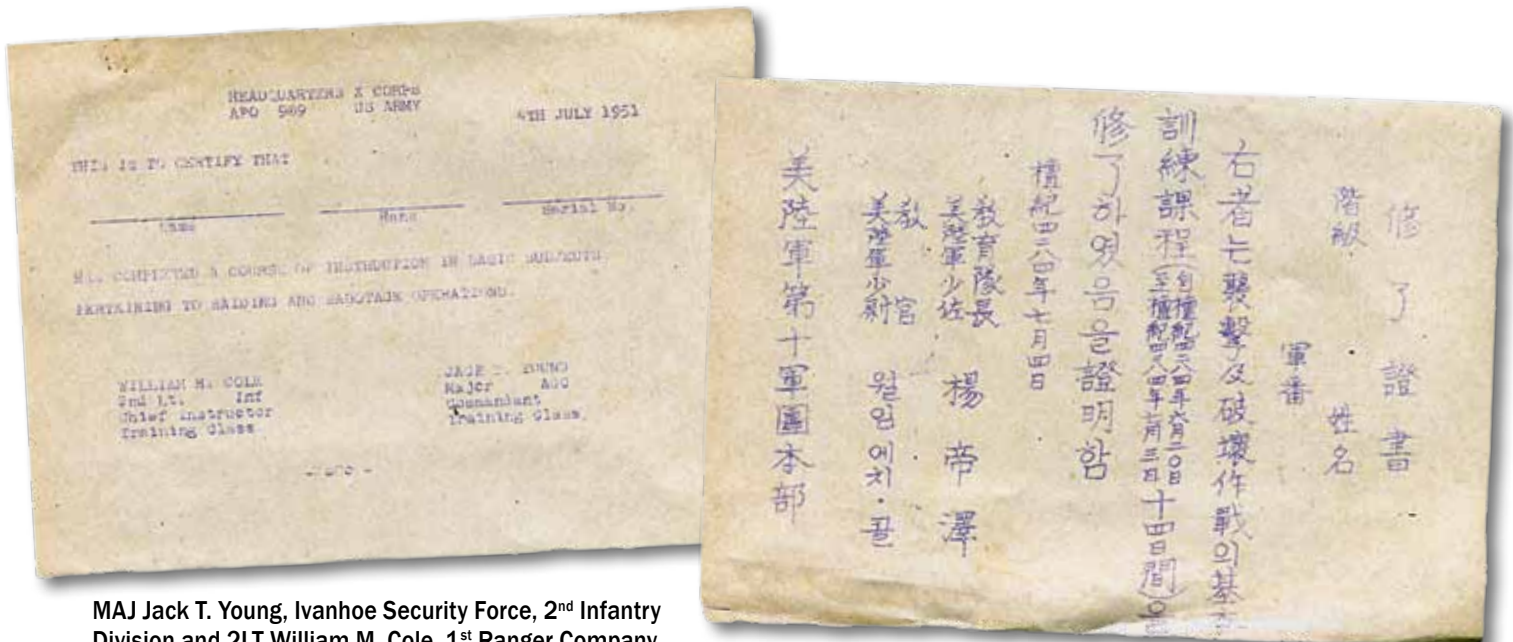 HEADQUARTERS X CORPS
APO 909 US ARMY
4TH JULY 1951
THIS IS TO CERTIFY THAT
Name Serial No.
HAS COMPLETED A COURSE OF INSTRUCTION IN BASIC SUBJECTS
PERTAINING TO RAIDING AND SABOTAGE OPERATIONS.
WILLIAM M. COLE
2nd Lt. Inf
Chief Instructor
Training Class
JACK T. YOUNG
Major AGC
Commandant
Training Class
修了證書
階級 姓名
軍番
右者는襲擊及破壞作戰의基
訓練課程(自檀紀四二八四年六月二〇日
至檀紀四二八四年七月三日十四日間)을
修了하였음을證明함
檀紀四二八四年七月四日
敎育隊長
美陸軍少佐 楊帝澤
敎官
美陸軍少尉 월임에치·콜
美陸軍第十軍團本部
MAJ Jack T. Young, Ivanhoe Security Force, 2nd Infantry
Division and 2LT William M. Cole, 1st Ranger Company